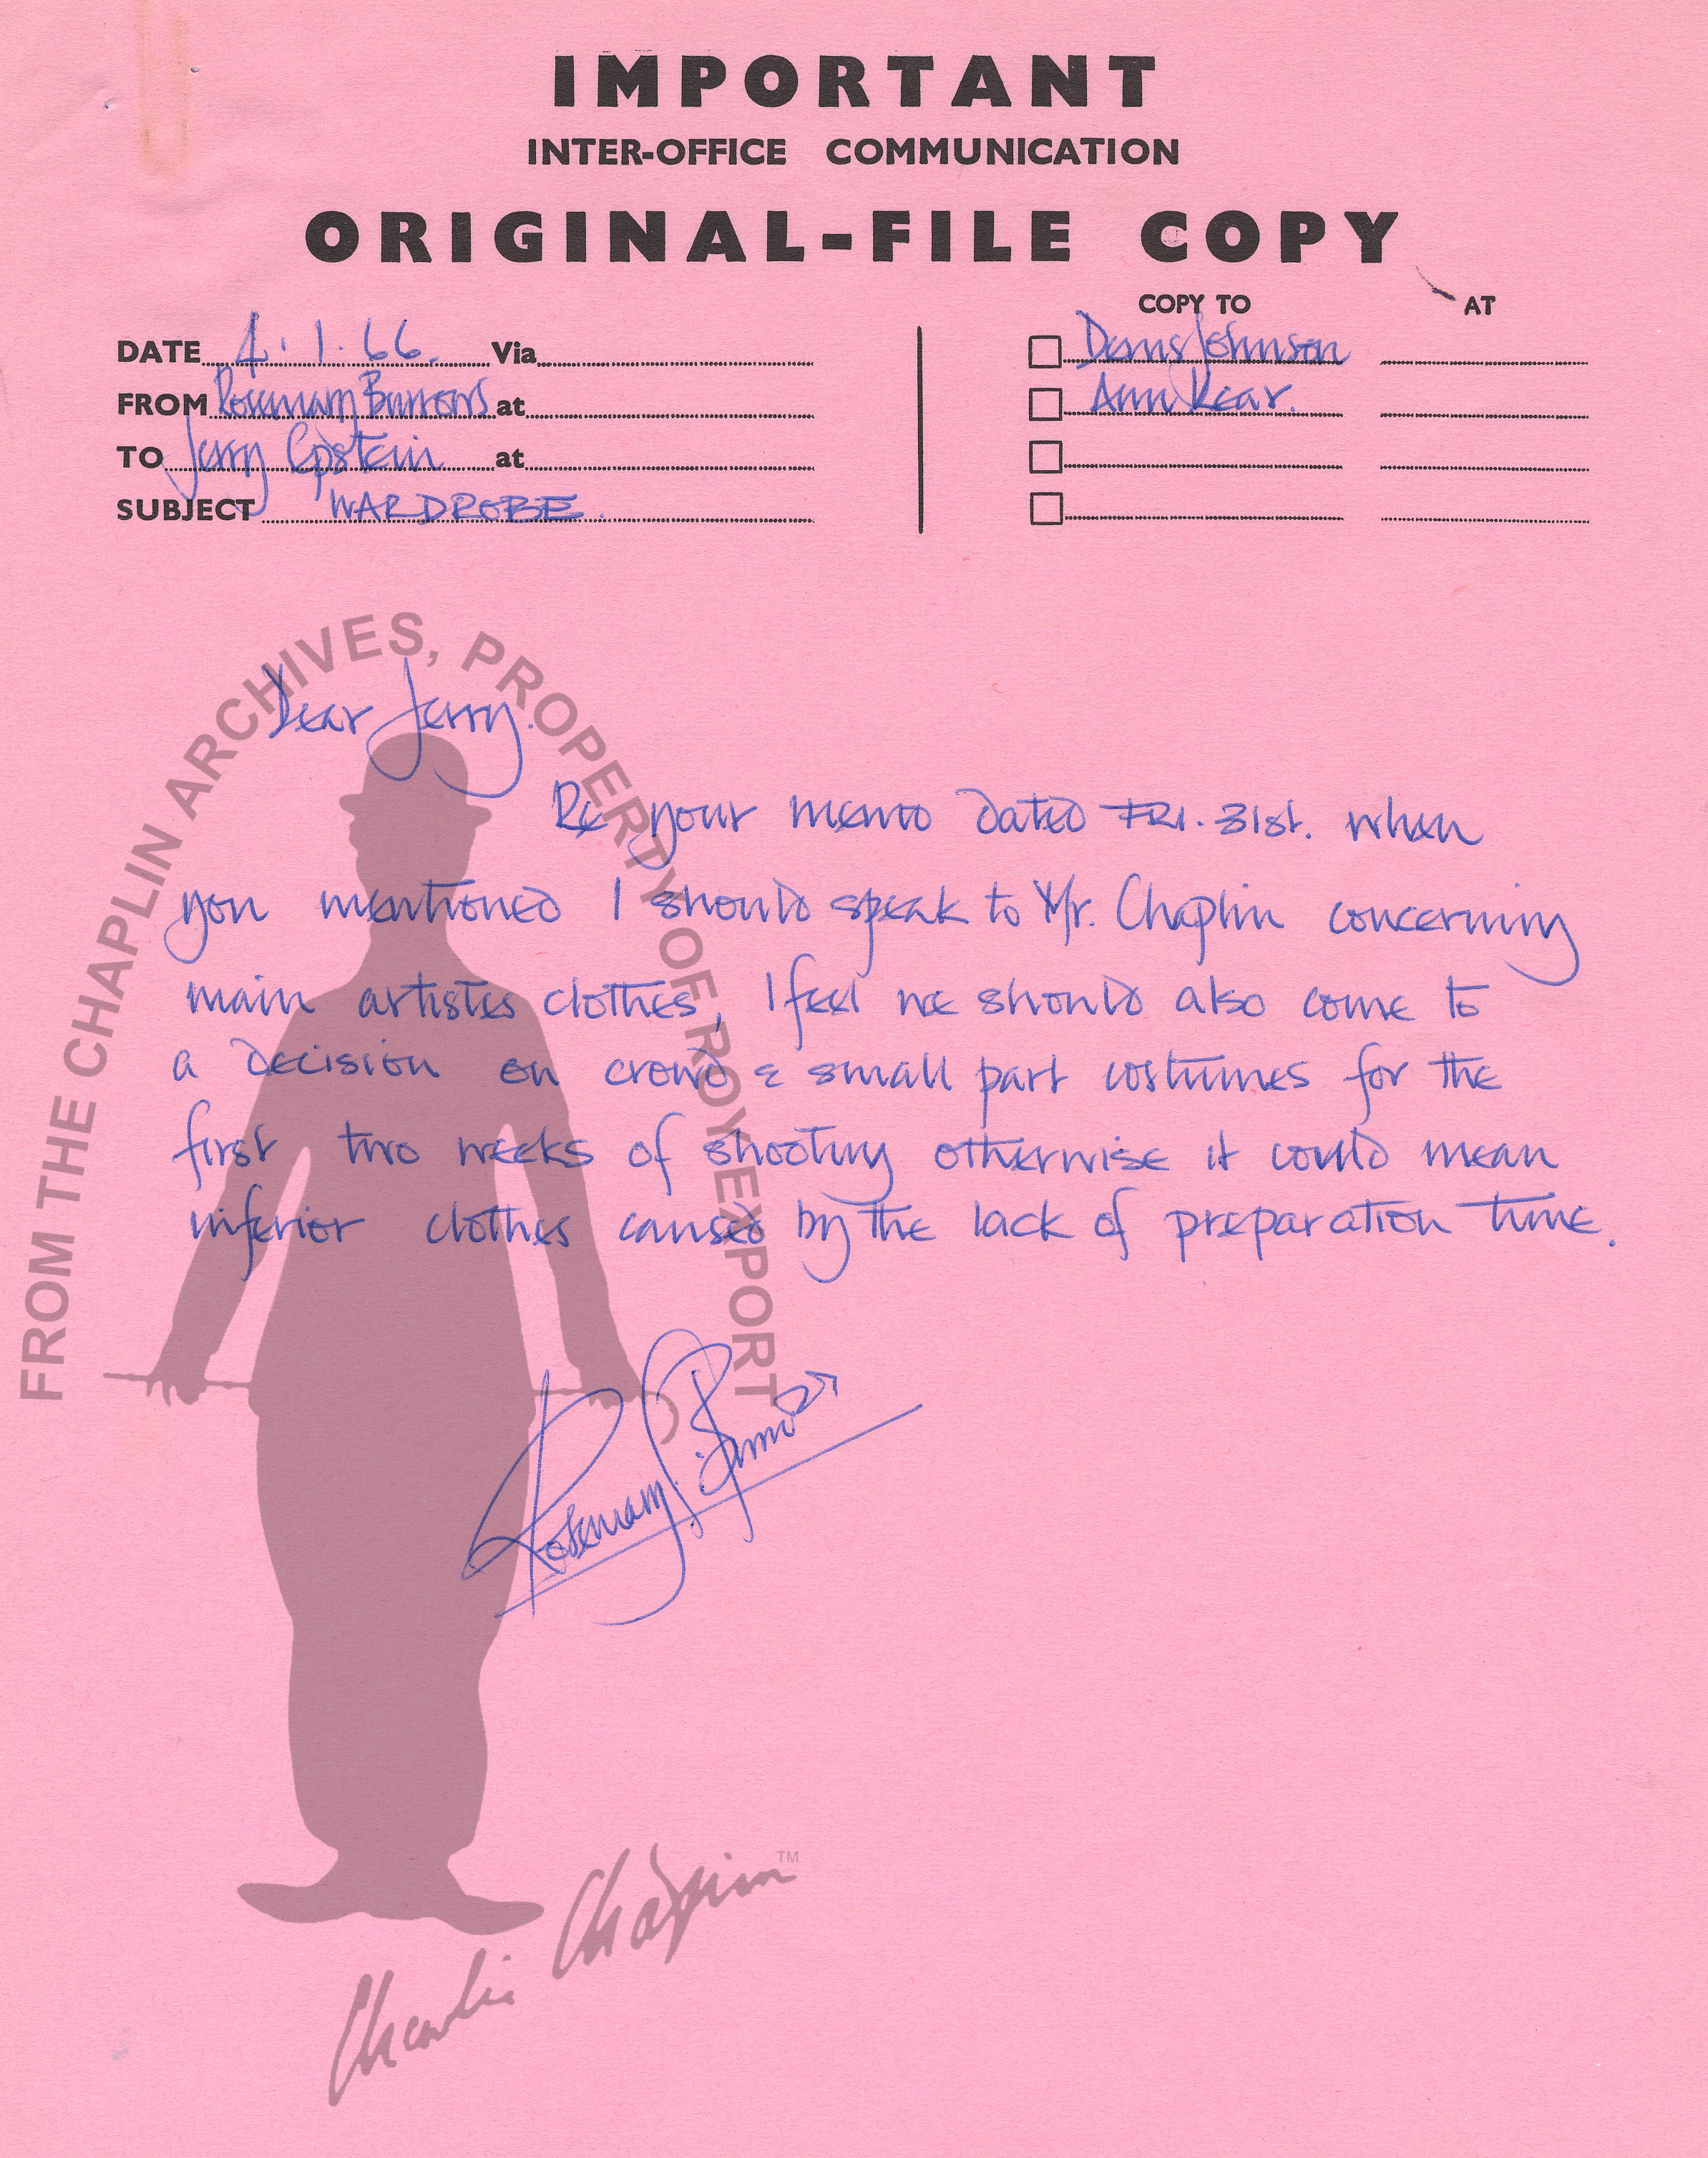 IMPORTANT
INTER-OFFICE COMMUNICATION
ORIGINAL-FILE COPY
COPY TO AT
DATE 4.1.66. Via Denis Johnson
FROM Rosemary Burrows at Ann Kear.
TO Jerry Epstein at
SUBJECT WARDROBE.
FROM THE CHAPLIN ARCHIVES, PROPERTY OF ROY EXPORT
Dear Jerry.
Re your memo dated FRI. 31st. when
you mentioned I should speak to Mr. Chaplin concerning
main artistes clothes, I feel we should also come to
a decision on crowd & small part costumes for the
first two weeks of shooting otherwise it could mean
inferior clothes caused by the lack of preparation time.
Rosemary Burrows
Charlie Chaplin TM